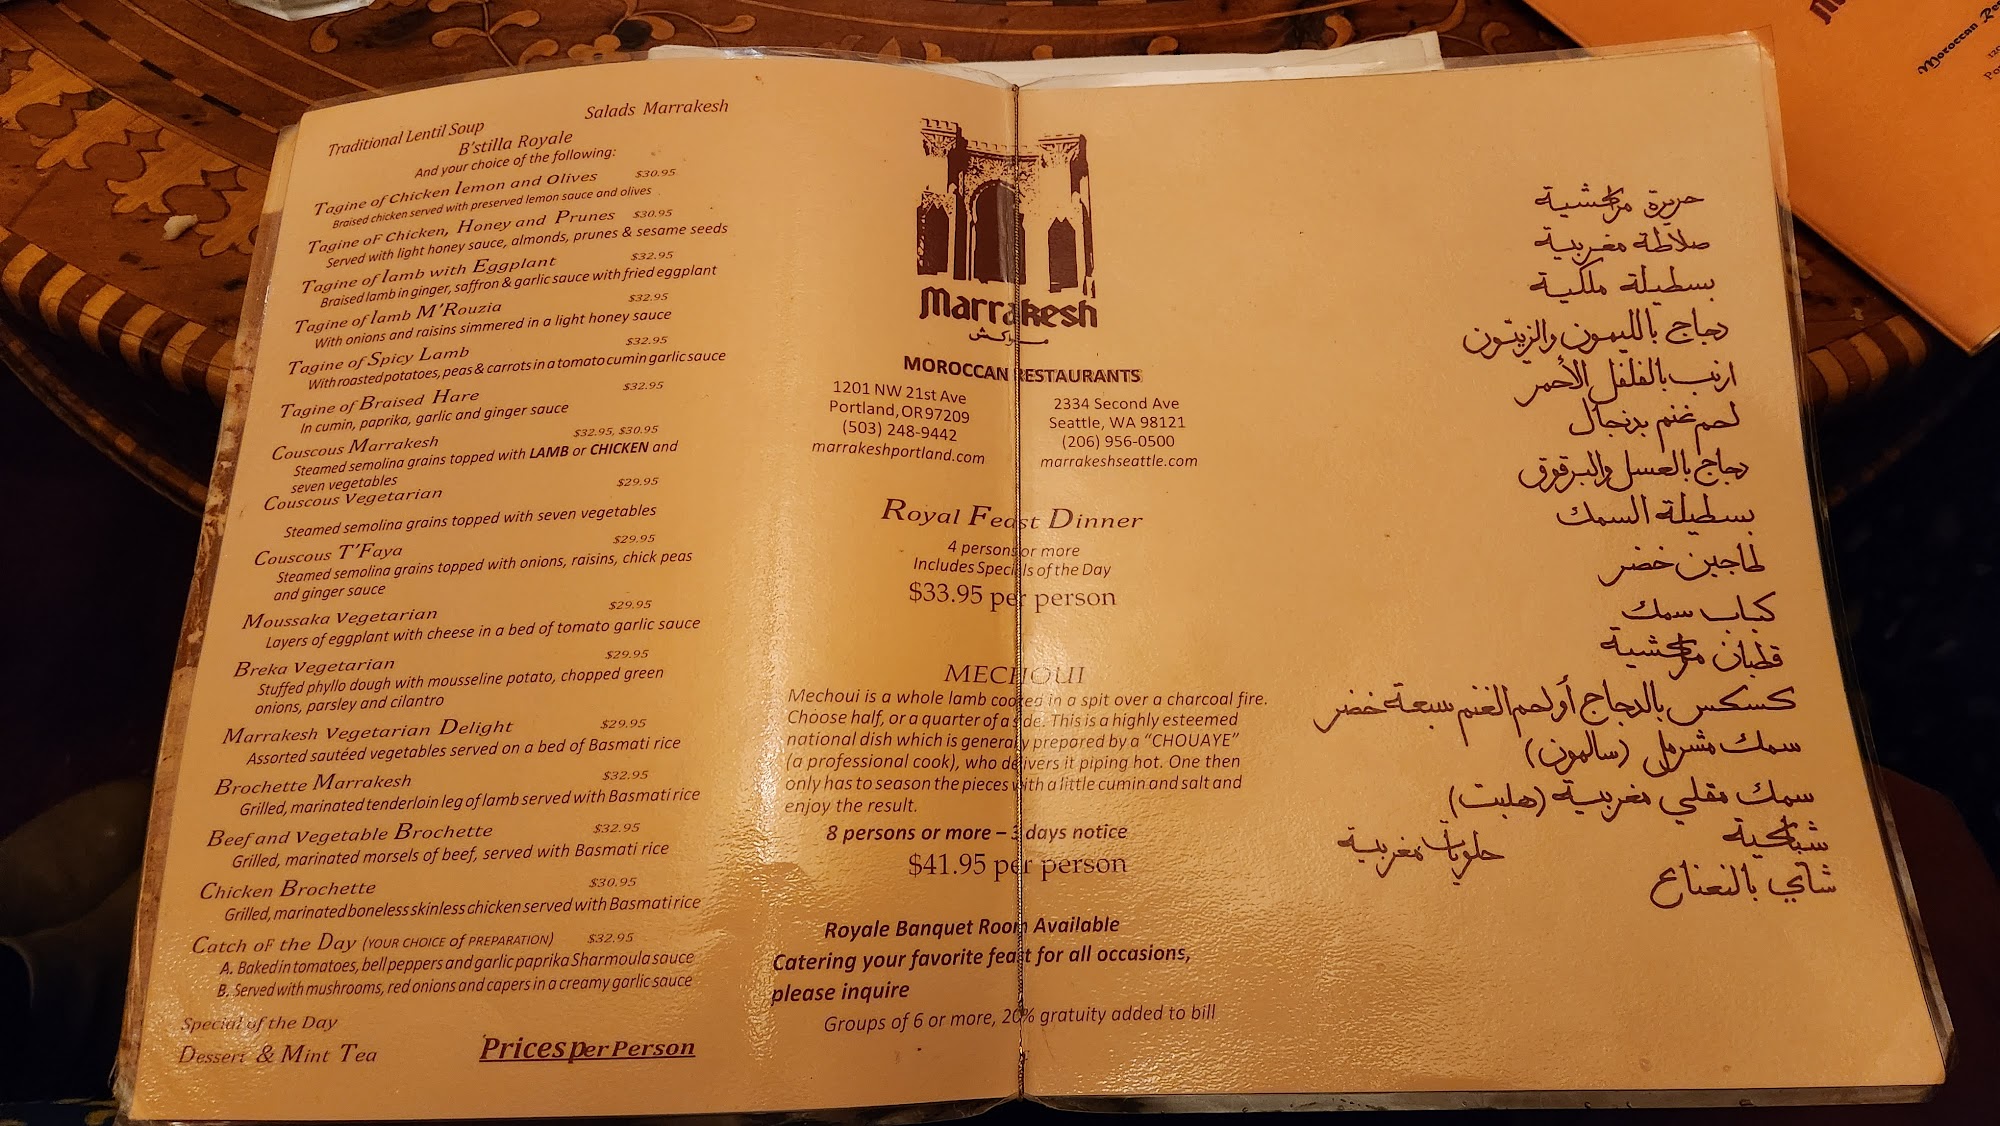 Traditional Lentil Soup
Salads Marrakesh
B'stilla Royale
And your choice of the following:
Tagine of Chicken lemon and Olives $30.95
Braised chicken served with preserved lemon sauce and olives
Tagine oF Chicken, Honey and Prunes $30.95
Served with light honey sauce, almonds, prunes & sesame seeds
Tagine of lamb with Eggplant $32.95
Braised lamb in ginger, saffron & garlic sauce with fried eggplant
Tagine of lamb M'Rouzia $32.95
With onions and raisins simmered in a light honey sauce
Tagine of Spicy Lamb $32.95
With roasted potatoes, peas & carrots in a tomato cumin garlic sauce
Tagine of Braised Hare $32.95
In cumin, paprika, garlic and ginger sauce
Couscous Marrakesh $32.95, $30.95
Steamed semolina grains topped with LAMB or CHICKEN and
seven vegetables
Couscous Vegetarian $29.95
Steamed semolina grains topped with seven vegetables
Couscous T'Faya $29.95
Steamed semolina grains topped with onions, raisins, chick peas
and ginger sauce
Moussaka Vegetarian $29.95
Layers of eggplant with cheese in a bed of tomato garlic sauce
Breka Vegetarian $29.95
Stuffed phyllo dough with mousseline potato, chopped green
onions, parsley and cilantro
Marrakesh Vegetarian Delight $29.95
Assorted sautéed vegetables served on a bed of Basmati rice
Brochette Marrakesh $32.95
Grilled, marinated tenderloin leg of lamb served with Basmati rice
Beef and Vegetable Brochette $32.95
Grilled, marinated morsels of beef, served with Basmati rice
Chicken Brochette $30.95
Grilled, marinated boneless skinless chicken served with Basmati rice
Catch oF the Day (YOUR CHOICE of PREPARATION) $32.95
A. Baked in tomatoes, bell peppers and garlic paprika Sharmoula sauce
B. Served with mushrooms, red onions and capers in a creamy garlic sauce
Special of the Day
Dessert & Mint Tea
Prices per Person
Marrakesh
مراكش
MOROCCAN RESTAURANTS
1201 NW 21st Ave
Portland, OR 97209
(503) 248-9442
marrakeshportland.com
2334 Second Ave
Seattle, WA 98121
(206) 956-0500
marrakeshseattle.com
Royal Feast Dinner
4 persons or more
Includes Specials of the Day
$33.95 per person
MECHOUI
Mechoui is a whole lamb cooked in a spit over a charcoal fire.
Choose half, or a quarter of a side. This is a highly esteemed
national dish which is generally prepared by a "CHOUAYE"
(a professional cook), who delivers it piping hot. One then
only has to season the pieces with a little cumin and salt and
enjoy the result.
8 persons or more – 3 days notice
$41.95 per person
Royale Banquet Room Available
Catering your favorite feast for all occasions,
please inquire
Groups of 6 or more, 20% gratuity added to bill
حريرة مراكشية
صلاطة مغربية
بسطيلة ملكية
دجاج بالليمون والزيتون
ارنب بالفلفل الأحمر
لحم غنم بدنجال
دجاج بالعسل والبرقوق
بسطيلة السمك
طاجين خضر
كباب سمك
قطبان مراكشية
كسكس بالدجاج أولحم الغنم سبعة خضر
سمك مشرمل (سالمون)
سمك مقلي مغربية (هلبت)
شباكية
حلويات مغربية
شاي بالنعناع
Moroccan